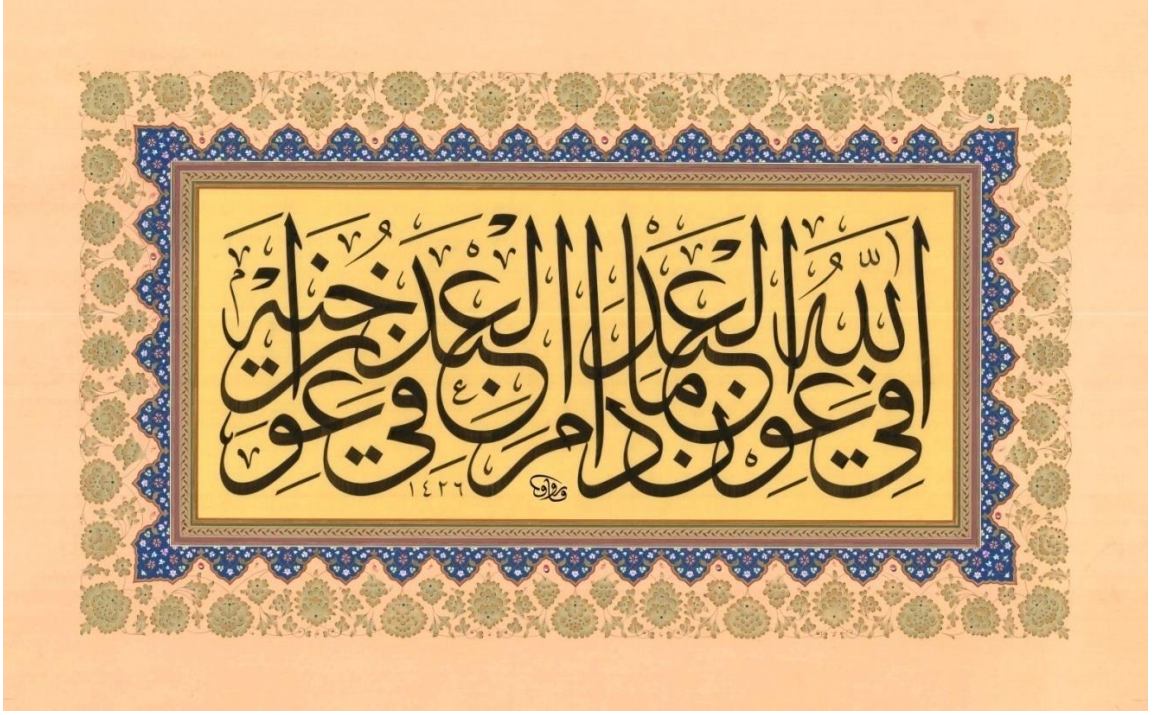 الله في عون العبد ما دام العبد في عون اخيه
فاروق ١٤٢٦